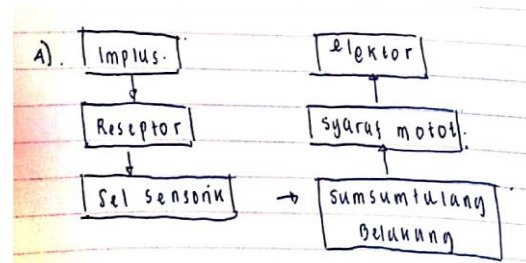 A).
Implus.
Reseptor
Sel Sensorik
Sumsumtulang
Belakang
syaraf motot.
elektor